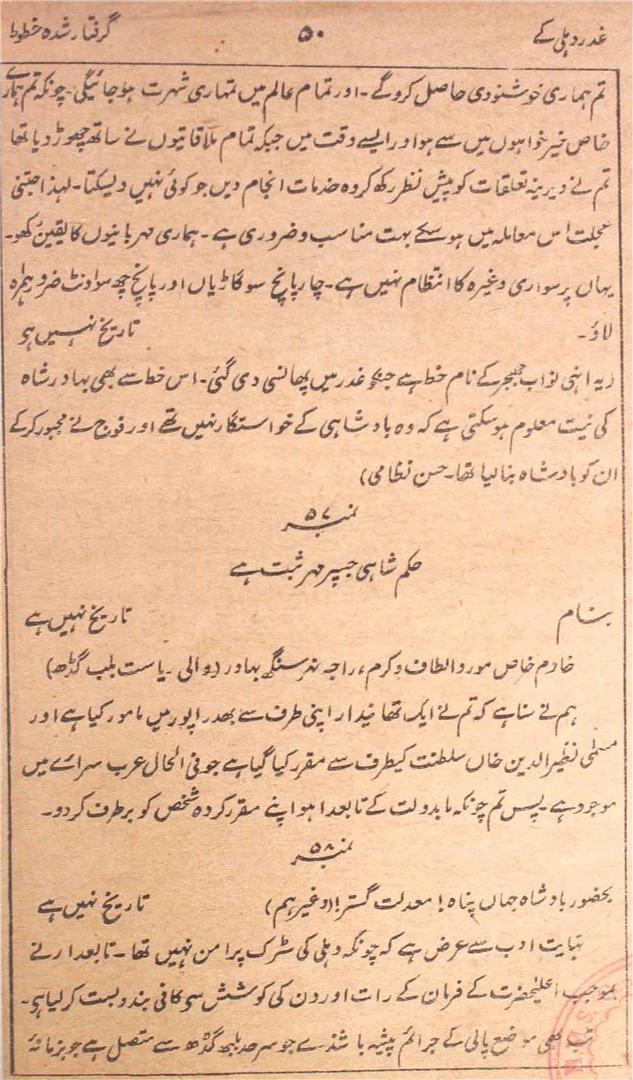 غدر دہلی کے ۵۰ گرفتار شدہ خطوط
تم ہماری خوشنودی حاصل کروگے۔ اور تمام عالم میں تمہاری شہرت ہوجائیگی۔ چونکہ تم ہمارے
خاص خیرخواہوں میں سے ہو اور ایسے وقت میں جبکہ تمام ملاقاتیوں نے ساتھ چھوڑ دیا تھا
تم نے دیرینہ تعلقات کو پیش نظر رکھ کر وہ خدمات انجام دیں جو کوئی نہیں دیسکتا۔ لہذا جتنی
عجلت اس معاملہ میں ہوسکے بہت مناسب و ضروری ہے۔ ہماری مہربانیوں کا یقین رکھو۔
یہاں پر سواری وغیرہ کا انتظام نہیں ہے۔ چار پانچ سو گاڑیاں اور پانچ چھ سو اونٹ ضرور ہمراہ
لاؤ۔ تاریخ نہیں ہو
(یہ انہی نواب جھجر کے نام خط ہے جنکو غدر میں پھانسی دی گئی۔ اس خط سے بھی بہادر شاہ
کی نیت معلوم ہوسکتی ہے کہ وہ بادشاہی کے خواستگار نہیں تھے اور فوج نے مجبور کرکے
ان کو بادشاہ بنالیا تھا۔ حسن نظامی)
نمبر ۵۷
حکم شاہی جسپر مہر ثبت ہے
بنام تاریخ نہیں ہے
خادم خاص مورد الطاف و کرم، راجہ نہر سنگھ بہادر (والی ریاست بلب گڈھ)
ہم نے سنا ہے کہ تم نے ایک تھانیدار اپنی طرف سے بھدراپور میں مامور کیا ہے اور
مسمی نظیر الدین خاں سلطنت کیطرف سے مقرر کیا گیا ہے جو فی الحال عرب سرائے میں
موجود ہے پس تم چونکہ مابدولت کے تابعدار ہو اپنے مقرر کردہ شخص کو برطرف کردو۔
نمبر ۵۸
بحضور بادشاہ جہاں پناہ! معدلت گستر! (وغیرہم) تاریخ نہیں ہے
نہایت ادب سے عرض ہے کہ چونکہ دہلی کی سڑک پر امن نہیں تھا۔ تابعدار نے
بموجب اعلیٰحضرت کے فرمان کے رات اور دن کی کوشش سو کافی بندوبست کرلیا ہو۔
تب بھی موضع پالی کے جرائم پیشہ باشندے جو سرحد بلبھ گڈھ سے متصل ہے جو بزمانۂ